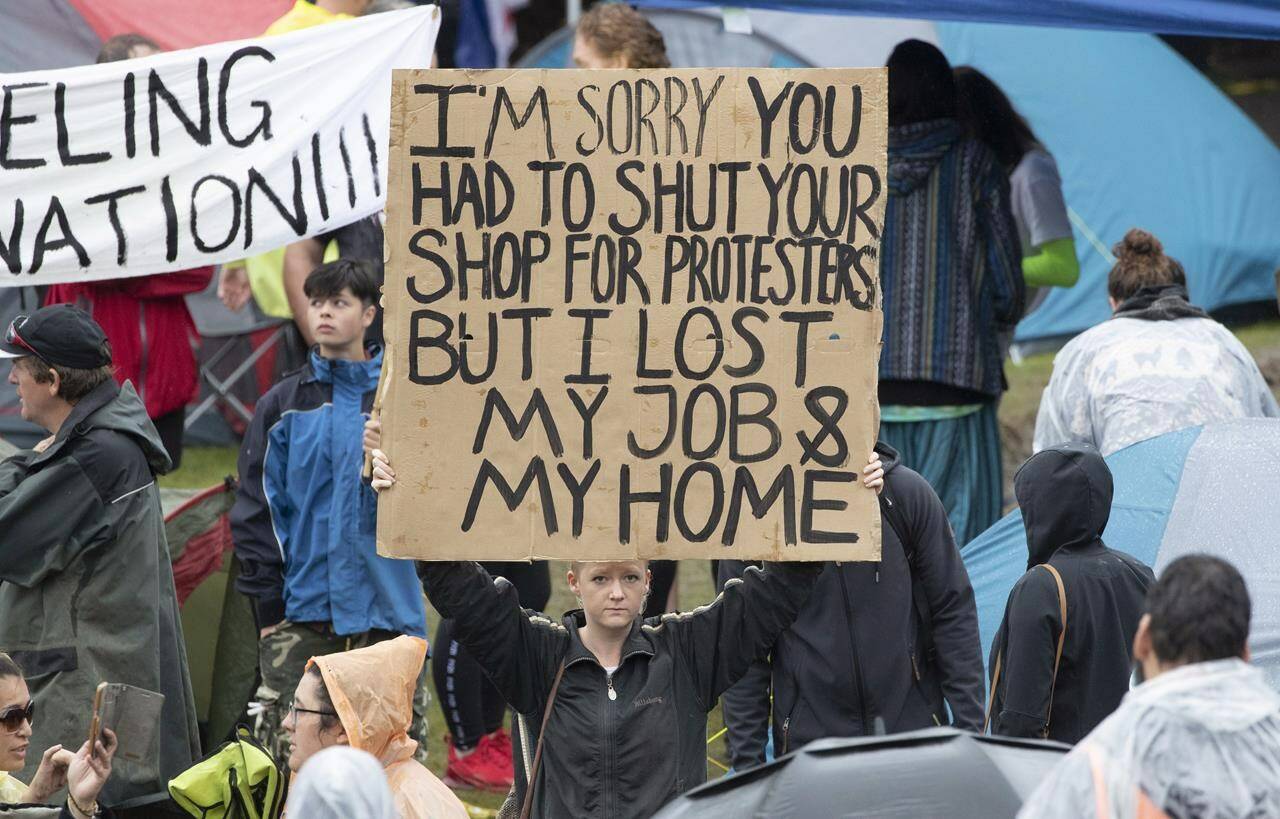 ELING
NATION!!!
I'M SORRY YOU
HAD TO SHUT YOUR
SHOP FOR PROTESTERS
BUT I LOST
MY JOB &
MY HOME
Billabong